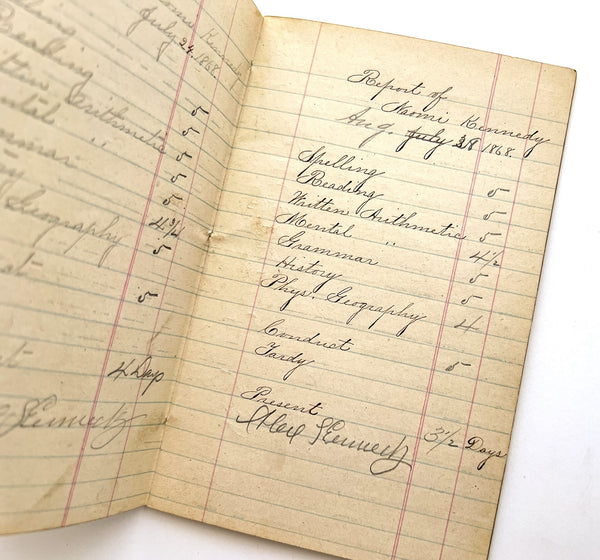 Kennedy
July 24 1868.
Reading 5
Arithmetic 5
" 5
5
5
Geography 4 3/4
5
5
4 Day
Report of
Naomi Kennedy
Aug July 28 1868.
Spelling 5
Reading 5
Written Arithmetic 5
Mental " 4 1/2
Grammar 5
History 5
Phys. Geography 4
Conduct 5
Tardy
Present 3 1/2 Days